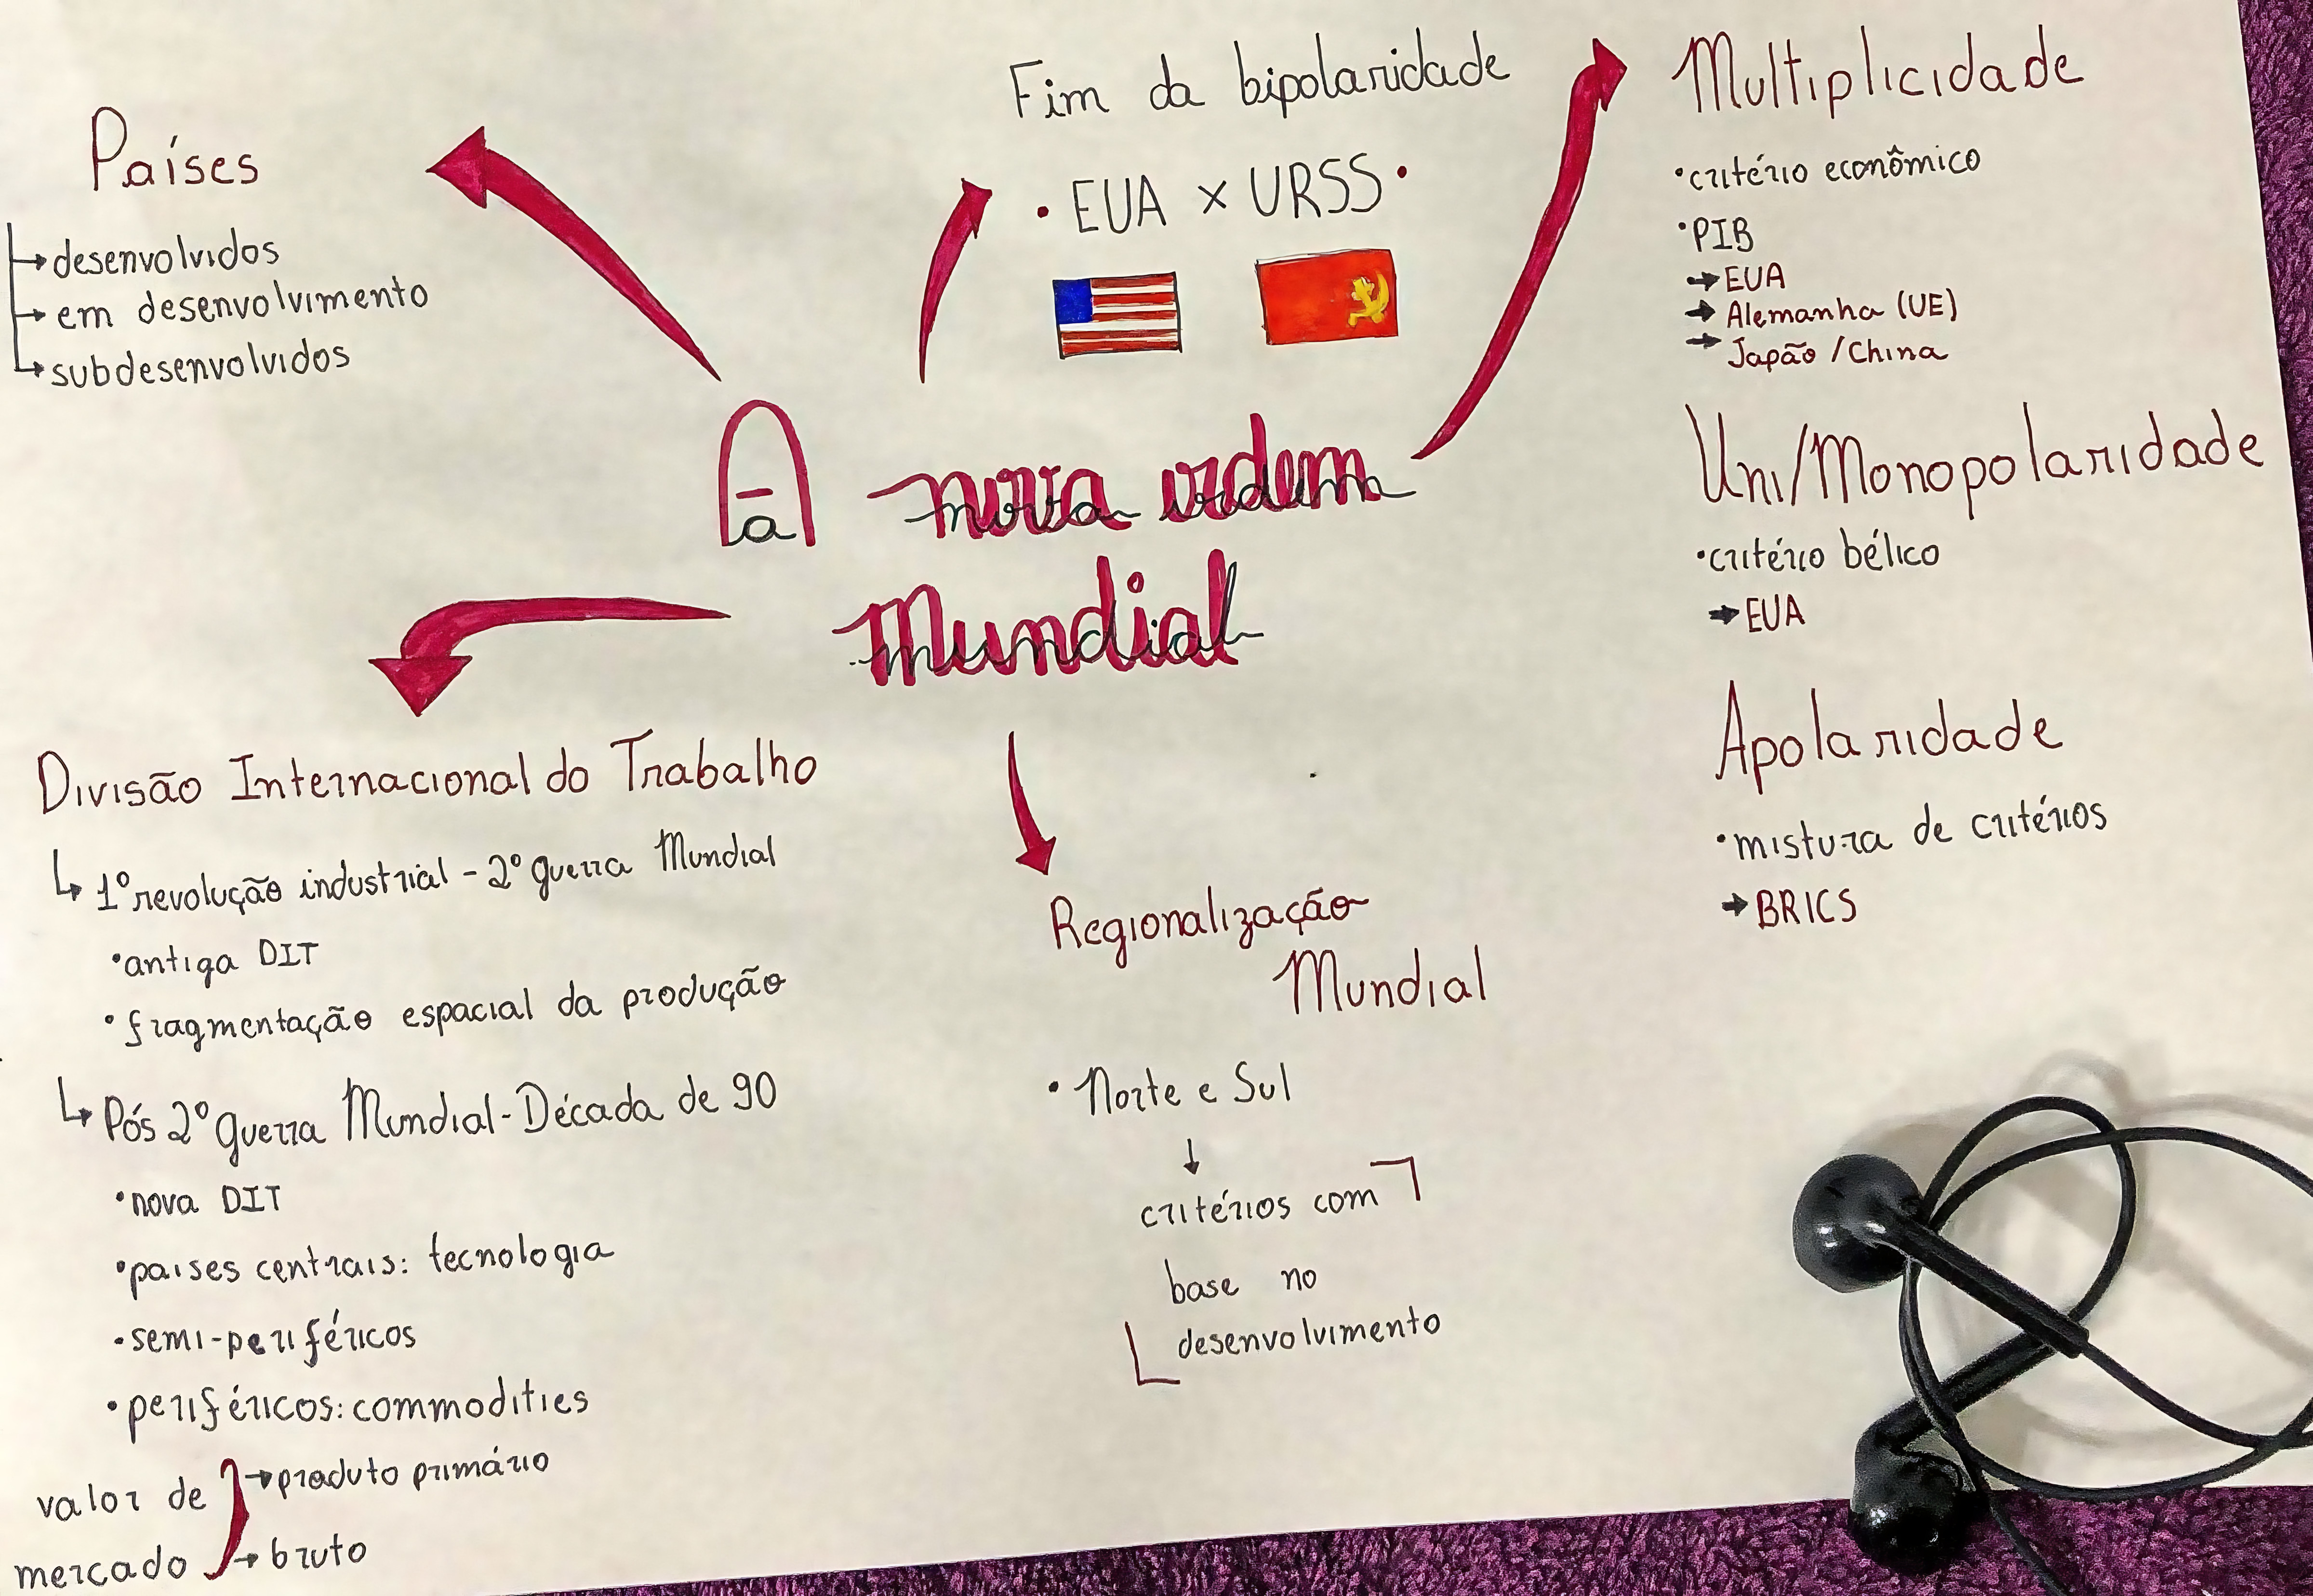 A nova ordem
Mundial
Países
desenvolvidos
em desenvolvimento
subdesenvolvidos
Fim da bipolaridade
• EUA x URSS •
Multiplicidade
• critério econômico
• PIB
→ EUA
→ Alemanha (UE)
→ Japão / China
Uni/Monopolaridade
• critério bélico
→ EUA
Apolaridade
• mistura de critérios
→ BRICS
Divisão Internacional do Trabalho
↳ 1º revolução industrial - 2º guerra Mundial
• antiga DIT
• fragmentação espacial da produção
↳ Pós 2º guerra Mundial - Década de 90
• nova DIT
• paises centrais: tecnologia
• semi-periféricos
• periféricos: commodities
valor de → produto primário
mercado → bruto
Regionalização
Mundial
• Norte e Sul
↓
critérios com
base no
desenvolvimento